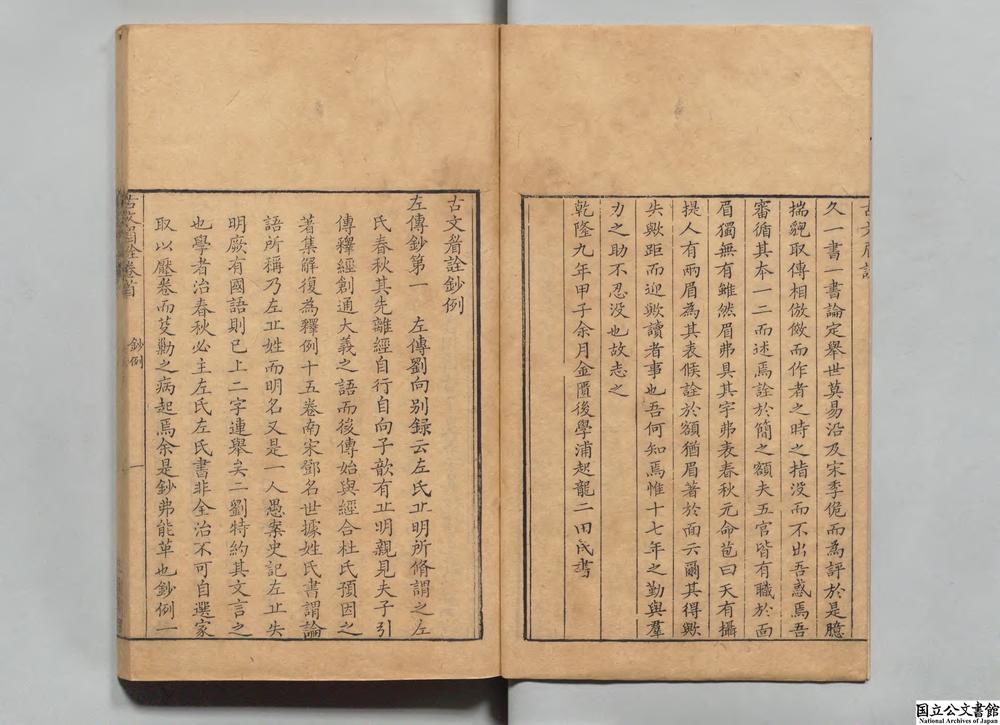 久一書一書論定舉世莫易沿及宋季佹而為評於是臆
揣貌取傳相倣傚而作者之時之指沒而不出吾惑焉吾
審循其本一二而述焉詮於簡之額夫五官皆有職於面
眉獨無有雖然眉弗具其宇弗表春秋元命苞曰天有攝
提人有兩眉為其表候詮於額猶眉著於面云爾其得歟
失歟距而迎歟讀者事也吾何知焉惟十七年之勤與羣
力之助不忍沒也故志之
乾隆九年甲子余月金匱後學浦起龍二田氏書
古文眉詮鈔例
左傳鈔第一 左傳劉向別錄云左氏丘明所脩謂之左
氏春秋其先離經自行自向子歆有丘明親見夫子引
傳釋經創通大義之語而後傳始與經合杜氏預因之
著集解復為釋例十五卷南宋鄧名世據姓氏書謂論
語所稱乃左丘姓而明名又是一人愚案史記左丘失
明厥有國語則已上二字連舉矣二劉特約其文言之
也學者治春秋必主左氏左氏書非全治不可自選家
取以壓卷而芟勦之病起焉余是鈔弗能革也鈔例一
古文眉詮卷首 鈔例 一
国立公文書館
National Archives of Japan